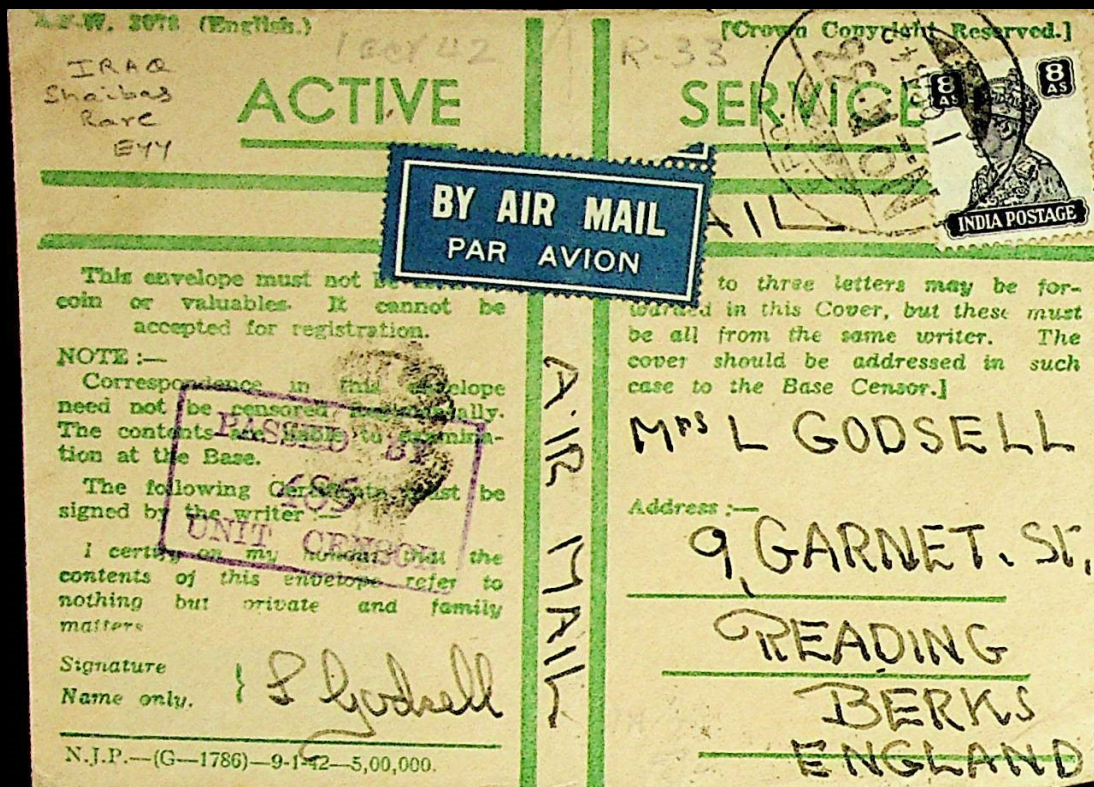 A.F.W. 3078 (English.)
[Crown Copyright Reserved.]
1 Oct 42
R-33
IRAQ
Shaibas
Rare
EYY
ACTIVE
SERVICE
8 AS
8 AS
INDIA POSTAGE
BY AIR MAIL
PAR AVION
AIL
This envelope must not
coin or valuables. It cannot be
accepted for registration.
NOTE :—
Correspondence in this envelope
need not be censored
The contents are liable to examina-
tion at the Base.
The following Certificate must be
signed by the writer :—
I certify on my honour that the
contents of this envelope refer to
nothing but private and family
matters
Signature
Name only.
S Godsell
N.J.P.—(G—1786)—9-1-42—5,00,000.
PASSED BY
485
UNIT CENSOR
AIR MAIL
to three letters may be for-
warded in this Cover, but these must
be all from the same writer. The
cover should be addressed in such
case to the Base Censor.]
Mrs L GODSELL
Address :—
9, GARNET. St,
READING
BERKS
ENGLAND